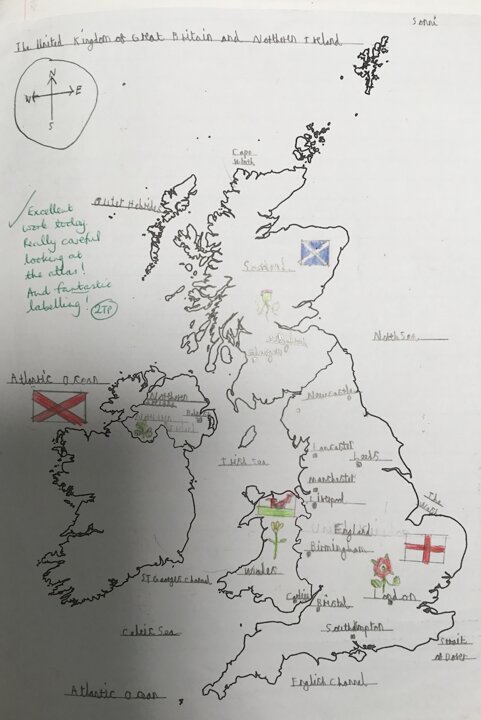 Sonni
The United Kingdom of Great Britain and Northern Ireland
N
W
E
S
Cape
Wrath
Outer Hebrides
✓ Excellent
work today.
Really careful
looking at
the atlas!
And fantastic
labelling!
2TP
Scotland
North Sea
Atlantic Ocean
Northern
Newcastle
Irish Sea
Lancaster
Leeds
Manchester
Liverpool
The
England
Birmingham
Wales
St Georges Channel
Cardiff
Bristol
London
Celtic Sea
Southampton
Strait
of Dover
English Channel
Atlantic Ocean